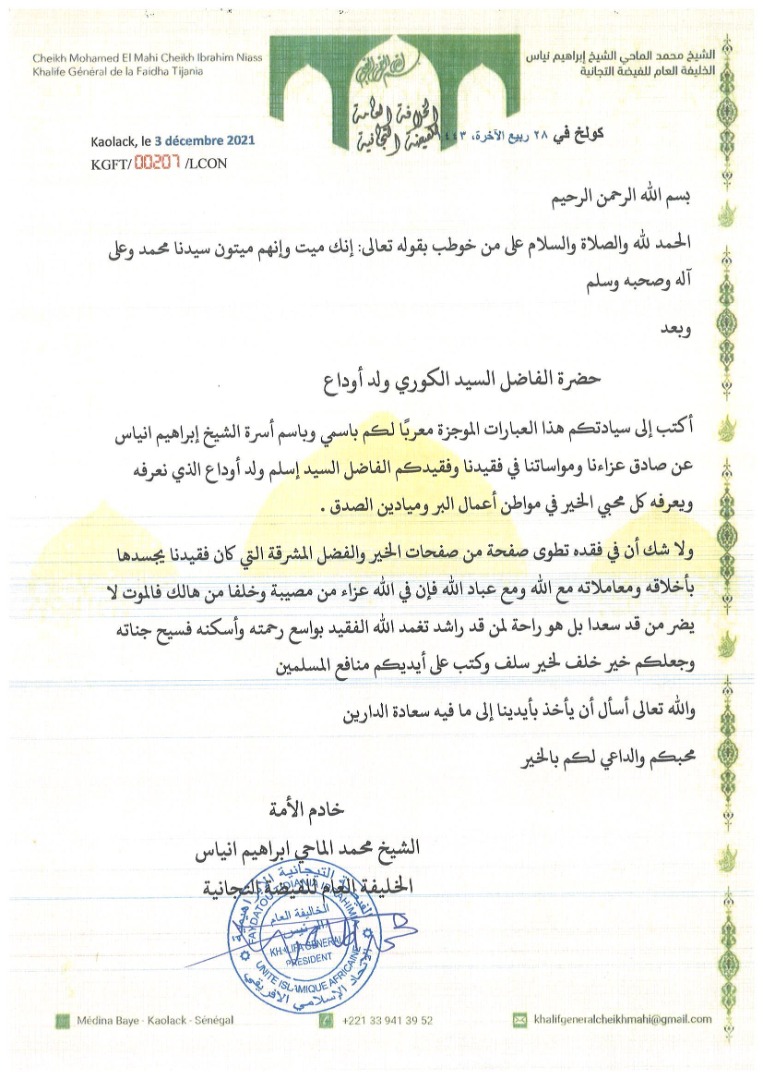 Cheikh Mohamed El Mahi Cheikh Ibrahim Niass
Khalife Général de la Faidha Tijania
الشيخ محمد الماحي الشيخ إبراهيم نياس
الخليفة العام للفيضة التجانية
الخلافة العامة
للفيضة التجانية
Kaolack, le 3 décembre 2021
KGFT/ 00207 /LCON
كولخ في ٢٨ ربيع الآخرة،
بسم الله الرحمن الرحيم
الحمد لله والصلاة والسلام على من خوطب بقوله تعالى: إنك ميت وإنهم ميتون سيدنا محمد وعلى
آله وصحبه وسلم
وبعد
حضرة الفاضل السيد الكوري ولد أوداع
أكتب إلى سيادتكم هذا العبارات الموجزة معربًا لكم باسمي وباسم أسرة الشيخ إبراهيم انياس
عن صادق عزاءنا ومواساتنا في فقيدنا وفقيدكم الفاضل السيد إسلم ولد أوداع الذي نعرفه
ويعرفه كل محبي الخير في مواطن أعمال البر وميادين الصدق .
ولا شك أن في فقده تطوى صفحة من صفحات الخير والفضل المشرقة التي كان فقيدنا يجسدها
بأخلاقه ومعاملاته مع الله ومع عباد الله فإن في الله عزاء من مصيبة وخلفا من هالك فالموت لا
يضر من قد سعدا بل هو راحة لمن قد راشد تغمد الله الفقيد بواسع رحمته وأسكنه فسيح جناته
وجعلكم خير خلف لخير سلف وكتب على أيديكم منافع المسلمين
والله تعالى أسأل أن يأخذ بأيدينا إلى ما فيه سعادة الدارين
محبكم والداعي لكم بالخير
خادم الأمة
الشيخ محمد الماحي ابراهيم انياس
الخليفة العام للفيضة التجانية
الفيضة التيجانية الإبراهيمية
FAYDATOU TIDIANIA IBRAHIMIA
الخاليفة العام
الرئيس
KHALIFA GENERAL
PRESIDENT
UNITE ISLAMIQUE AFRICAINE
الاتحاد الإسلامي الافريقي
Médina Baye - Kaolack - Sénégal
+221 33 941 39 52
khalifgeneralcheikhmahi@gmail.com